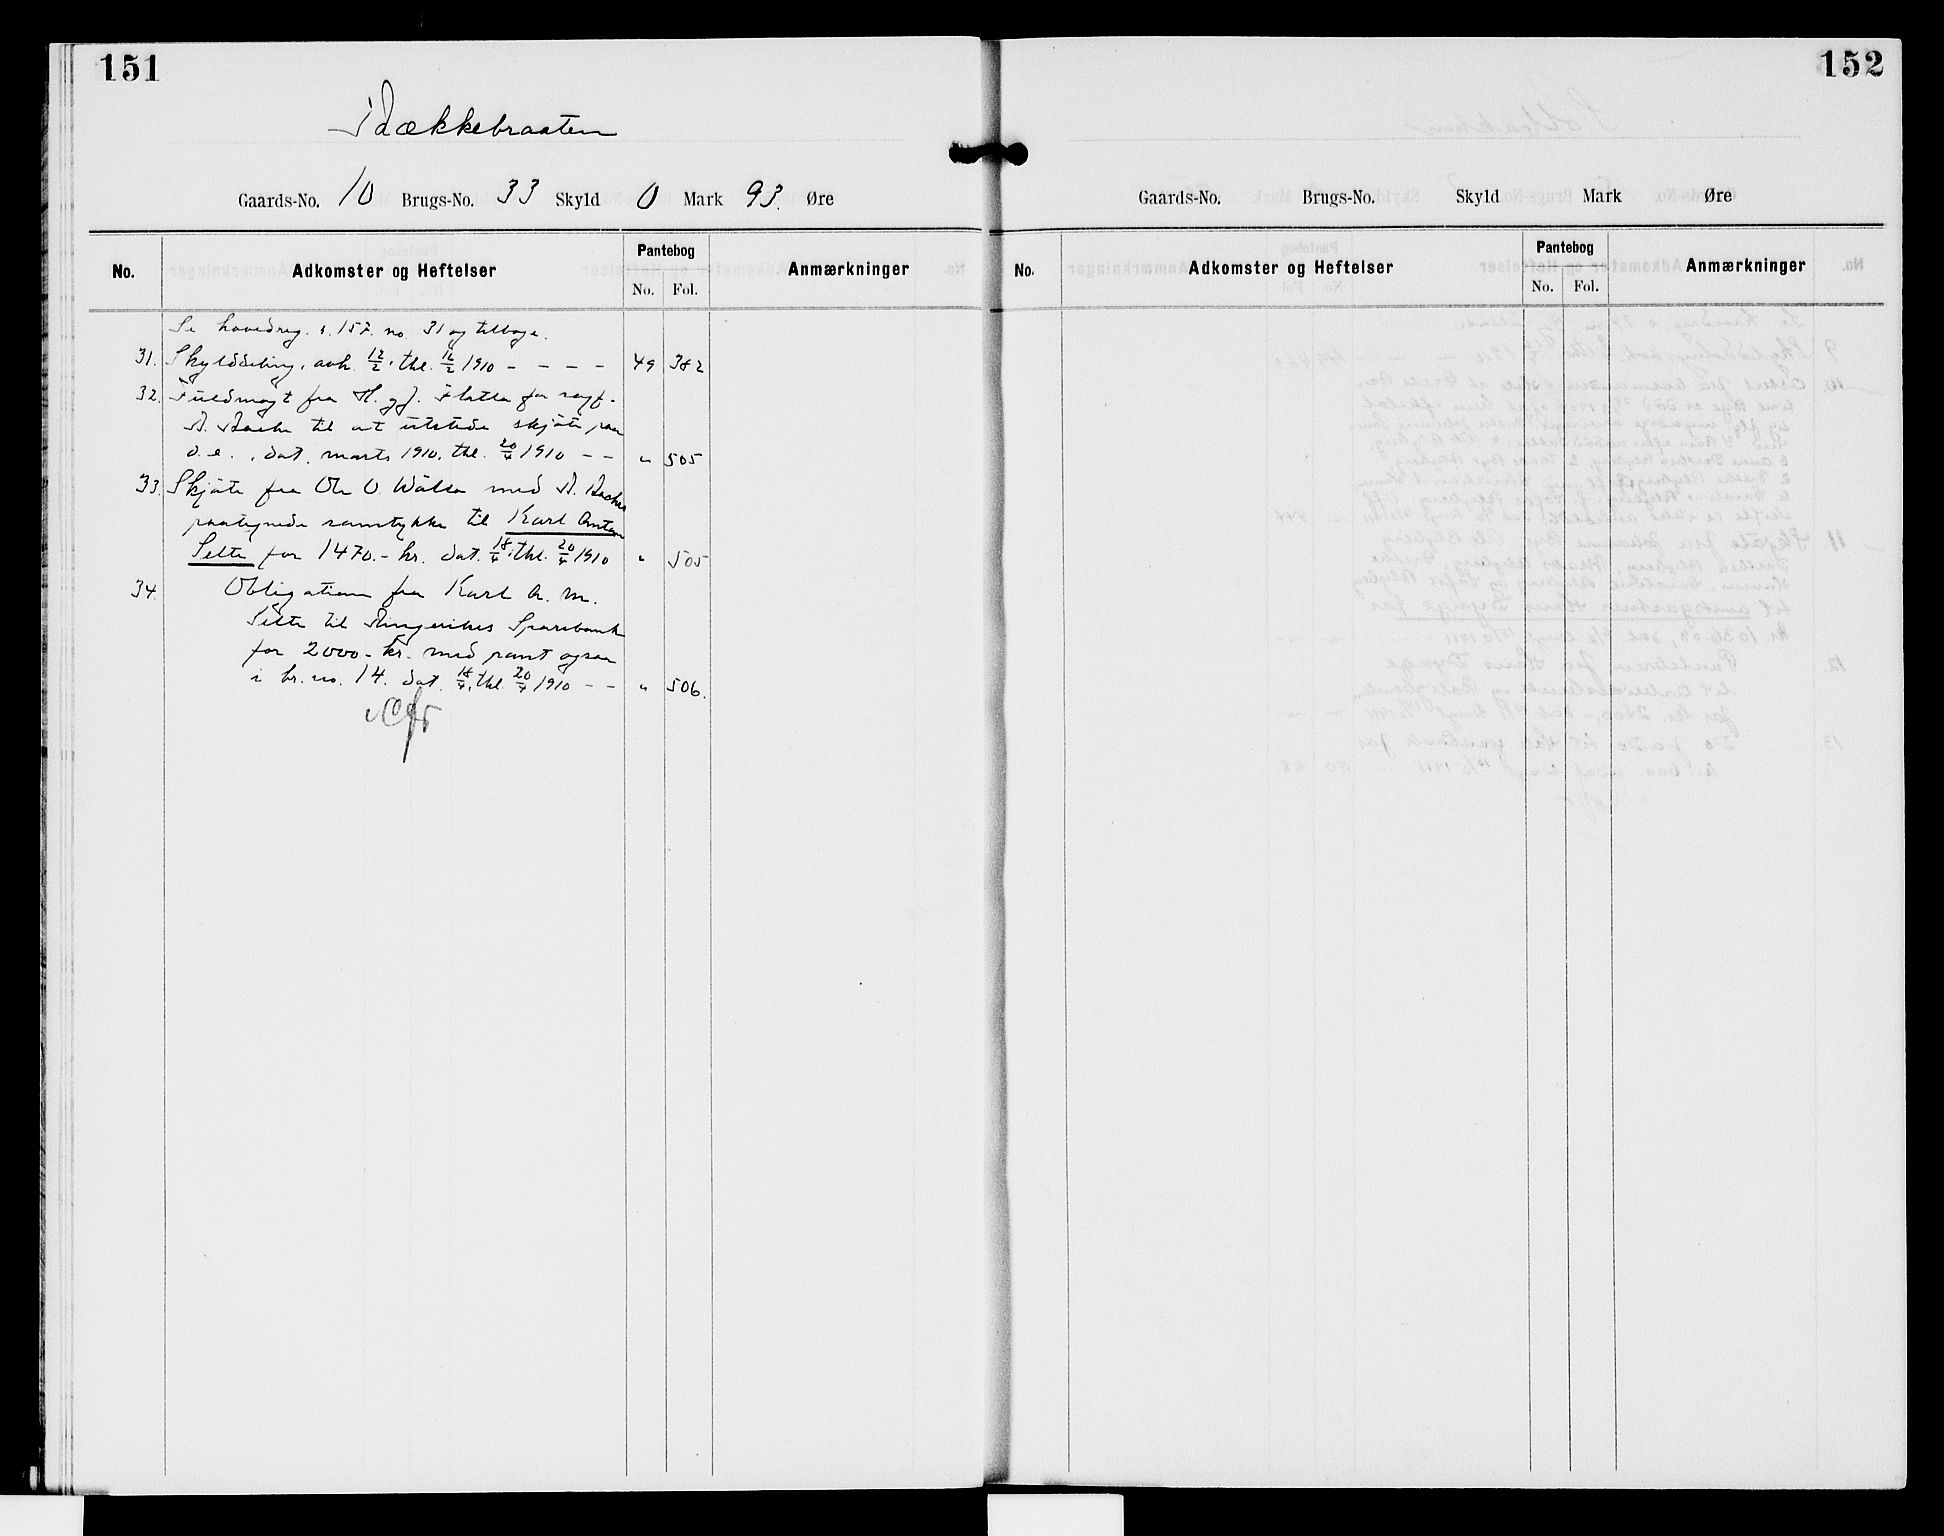 151
Bækkebraaten
Gaards-No. 10 Brugs-No. 33 Skyld 0 Mark 93. Øre
No. Adkomster og Heftelser Pantebog Anmærkninger
No. Fol.
Se hovedreg. s. 157. no. 31 og tilbage.
31. Skylddeling, avh. 12/2, thl. 16/2 1910 - - - - 49 382
32. Fuldmagt fra H. og J. Flatla for sagf.
A. Bache til at utstede skjøte paa
d. e., dat. marts 1910, thl. 20/4 1910 - - " 505
33. Skjøte fra Ole O. med A. Baches
paategnede samtykke til Karl Anton
Selte for 1470.- kr. dat. 18/4, thl. 20/4 1910 " 505
34. Obligation fra Karl A. M.
Selte til Ringerikes Sparebank
for 2000.- kr. med pant ogsaa
i br. no. 14. dat. 18/4, thl. 20/4 1910 - - " 506.
152
Gaards-No. Brugs-No. Skyld Mark Øre
No. Adkomster og Heftelser Pantebog Anmærkninger
No. Fol.